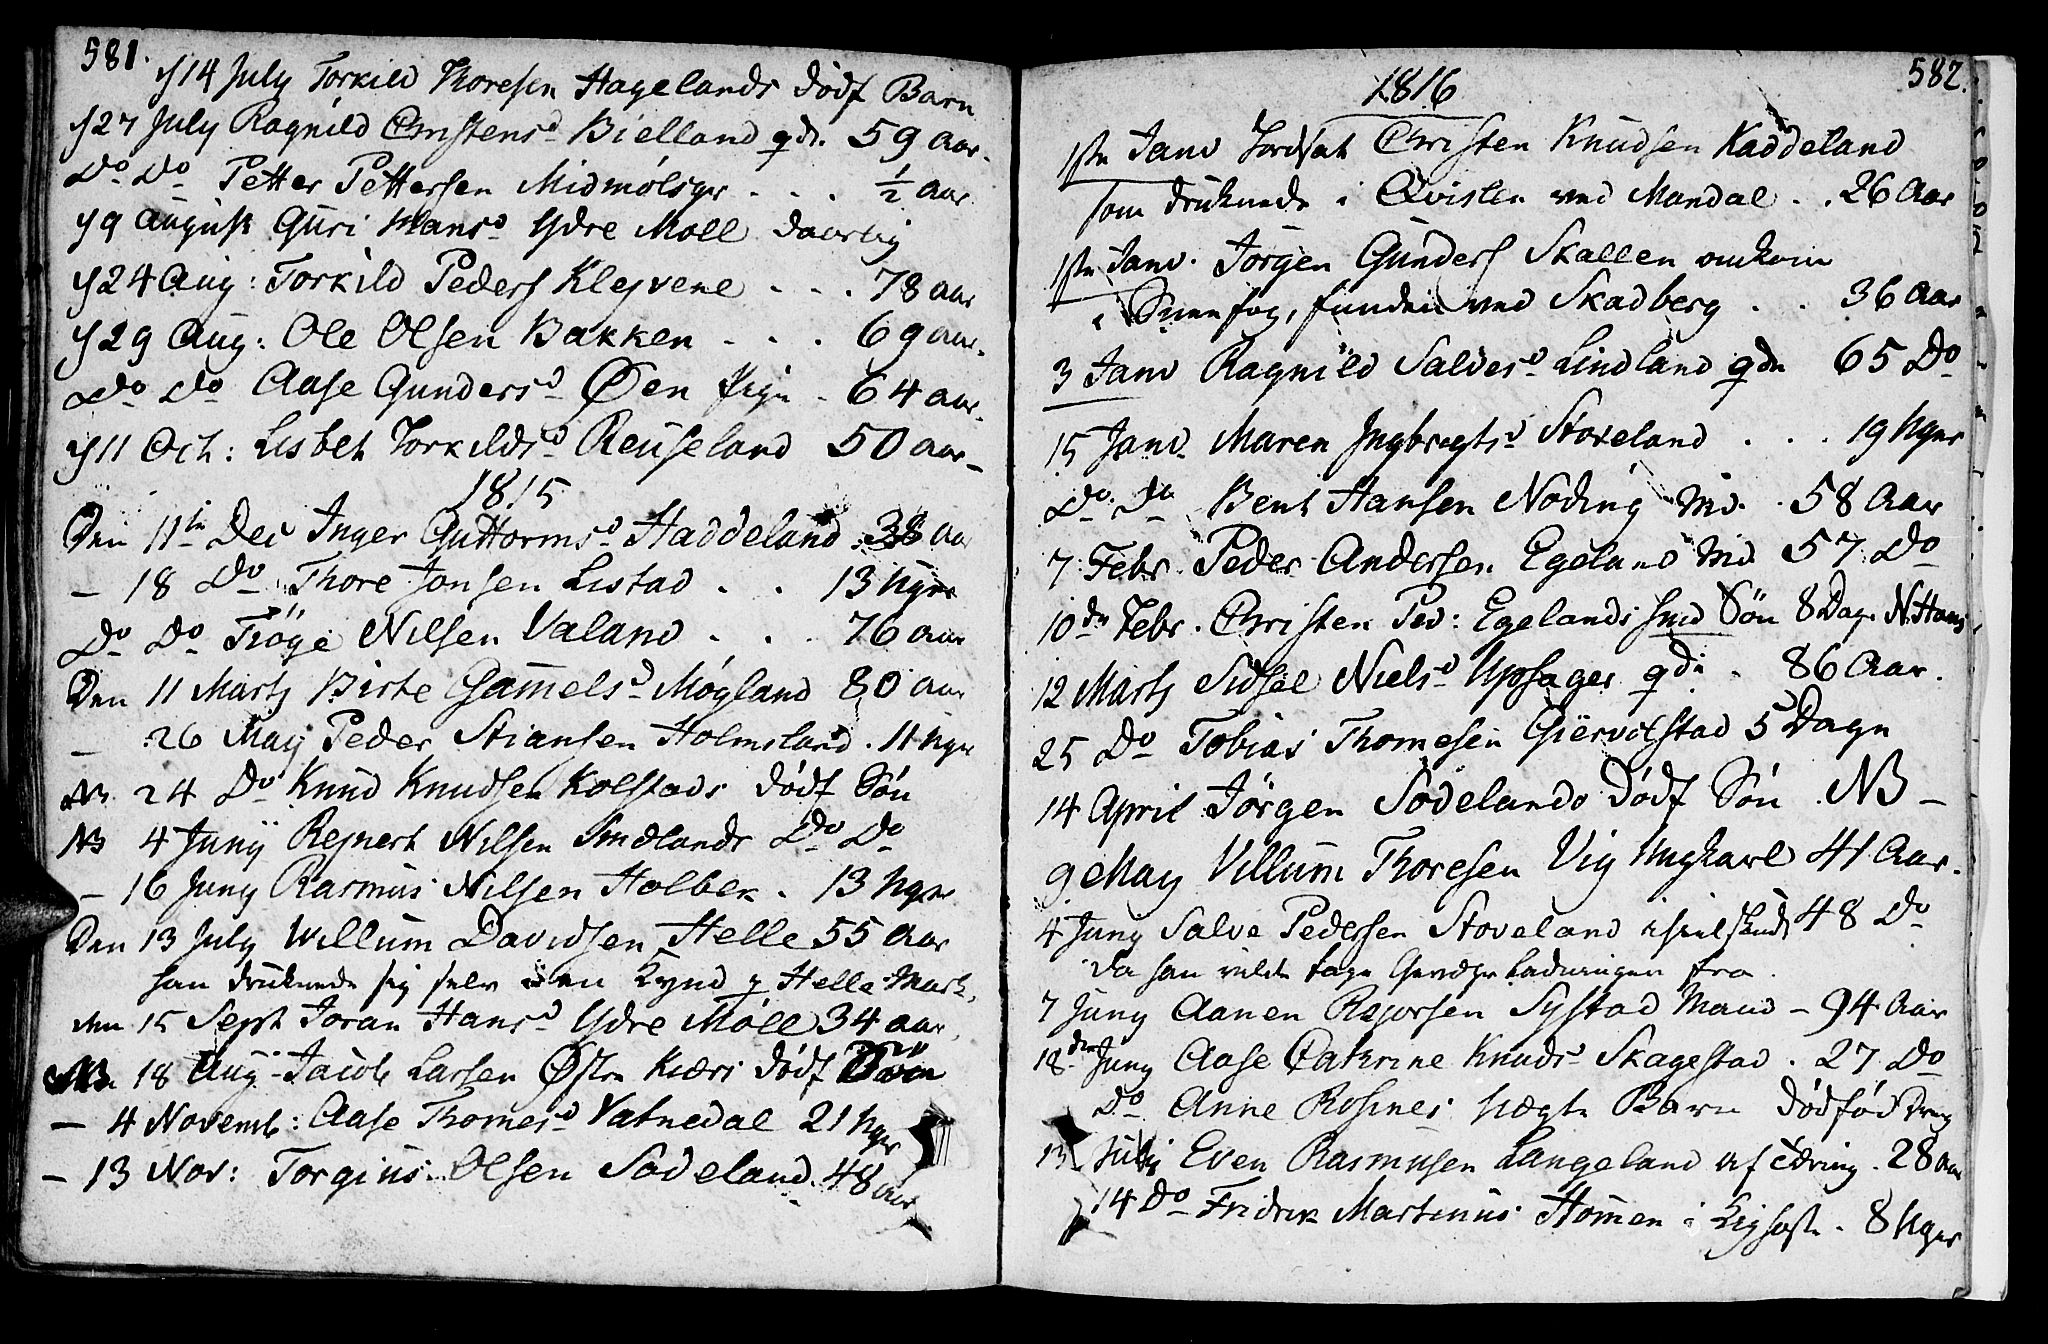 581.
d 14 July Torkild Thoresen Hagelands dödf Barn
d 27 July Ragnild Christensd Bielland gdk. 59 Aar.
Do Do Petter Pettersen Midmølsgr . . . ½ Aar
d 9 August Guri Hansd Ydre Møll daarlig
d 24 Aug: Torkild Peders Klejvene . . . 78 aar
d 29 Aug: Ole Olsen Bakken . . . 69 aar.
Do Do Aase Gundersd Øen Pige . 64 aar.
d 11 Oct: Lisbeth Torkildsd Reuseland 50 aar
1815
Den 11te Dec Inger Guttormsd Haddeland 38 aar
– 18 Do Thore Jonsen Listad . . 13 Uger
Do Do Tröge Nilsen Valand . . . 76 aar
Den 11 Marts Birte Gamelsd Møgland 80 aar
– 26 May Peder Stiansen Holmsland . 11 Uger
NB. 24 Do Knud Knudsen Kolstads dödf Sön
NB 4 Juny Rejnert Nilsen Smedlands Do Do
– 16 Juny Rasmus Nilsen Holbek . 13 Uger
Den 13 July Willum Davidsen Helle 55 Aar
han druknede sig selv i en Kynd p Helle Mark.
den 15 Sept Joran Hansd Ydre Møll 34 aar
NB. 18 Aug Jacob Larsen Østre Kiærs dödf
– 4 Novemb: Aase Thomesd Vatnedal 21 Uger
– 13 Nov: Torgius Olsen Sodeland . 48 aar
582.
1816
1ste Janv Jordsat Christen Knudsen Kaddeland
som druknede i Qvisten ved Mandal . . 26 Aar
1ste Janv. Jörgen Gunders Skallen omkom
i Sneefog, funden ved Skadberg . . 36 Aar
3 Janv Ragnild Salvesd Lindland gdk 65 Do
15 Janv. Maren Ingbregtsd Stoveland . . . 19 Uger
Do Do Bent Hansen Noding Md. . 58 Aar
7 Febr. Peder Andersen Egeland Md 57 Do
10de Febr. Christen Ped: Egelands Sön 8 Dage N. Hans
12 Marts Sidsel Nielsd Upsager gdk . 86 Aar.
25 Do Tobias Thomesen Giervolstad 5 Dage
14 April Jörgen Sodelands dödf Sön . NB –
9 May Villum Thoresen Vig Ungkarl 41 Aar.
4 Juny Salve Pedersen Stoveland ihielskudt 48 Do
da han vilde tage Geværs Ladningen fra.
7 Juny Aanen Rejersen Systad Mand – 94 Aar
18de Juny Aase Cathrine Knudsd Skagestad . 27 Do
Do Anne Rosines uægte Barn dödfød Dreng
13 July Even Rasmusen Langeland af Tæring . 28 aar
14 Do Fridrik Martinus Homen i Kighoste . 8 Uger